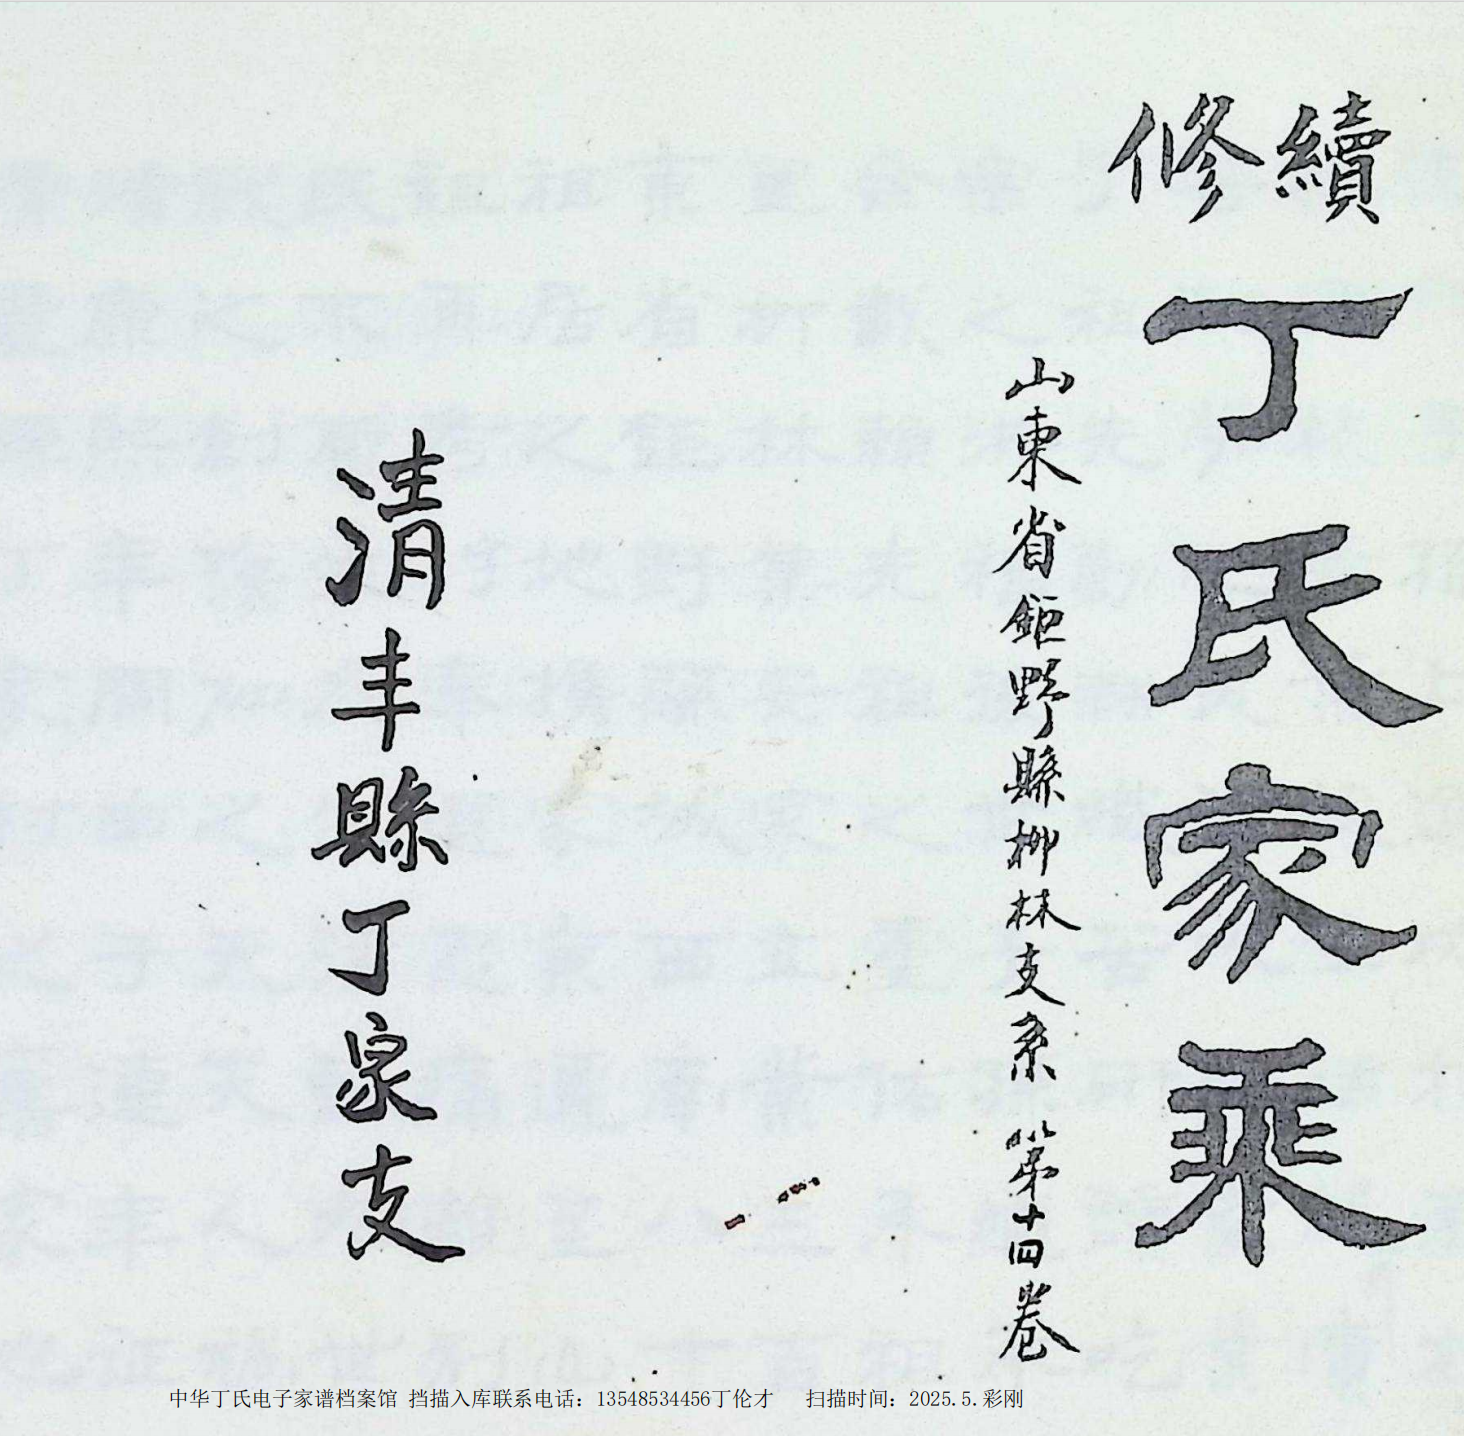 續修
丁氏家乘
山東省鉅野縣柳林支系 第十四卷
清丰縣丁家支
中华丁氏电子家谱档案馆 挡描入库联系电话：13548534456丁伦才 扫描时间：2025.5.彩刚